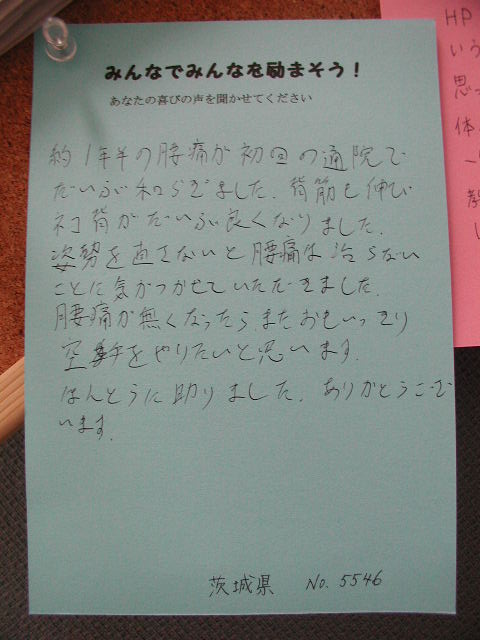 みんなでみんなを励まそう!
あなたの喜びの声を聞かせてください
約1年半の腰痛が初回の通院で
だいぶ和らぎました. 背筋も伸び
ネコ背がだいぶ良くなりました.
姿勢を直さないと腰痛は治らない
ことに気がつかせていただきました.
腰痛が無くなったら、またおもいっきり
空手をやりたいと思います.
ほんとうに助りました. ありがとうござ
います.
茨城県 No. 5546
HP
いう
思っ
体